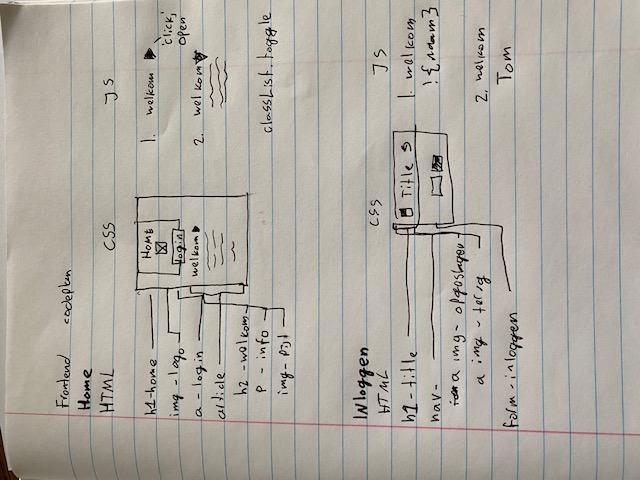 Frontend codeplan
Home
HTML CSS JS
h1-home
img-logo
a-login
article
h2-welkom
p-info
img-pijl
Home
login
welkom
1. welkom
'click,
open
2. welkom
classList.toggle
Inloggen
HTML CSS JS
h1-title
nav-
a img-opgeslagen
a img-terug
form-inloggen
Title
1. welkom
!{naam}
2. welkom
Tom